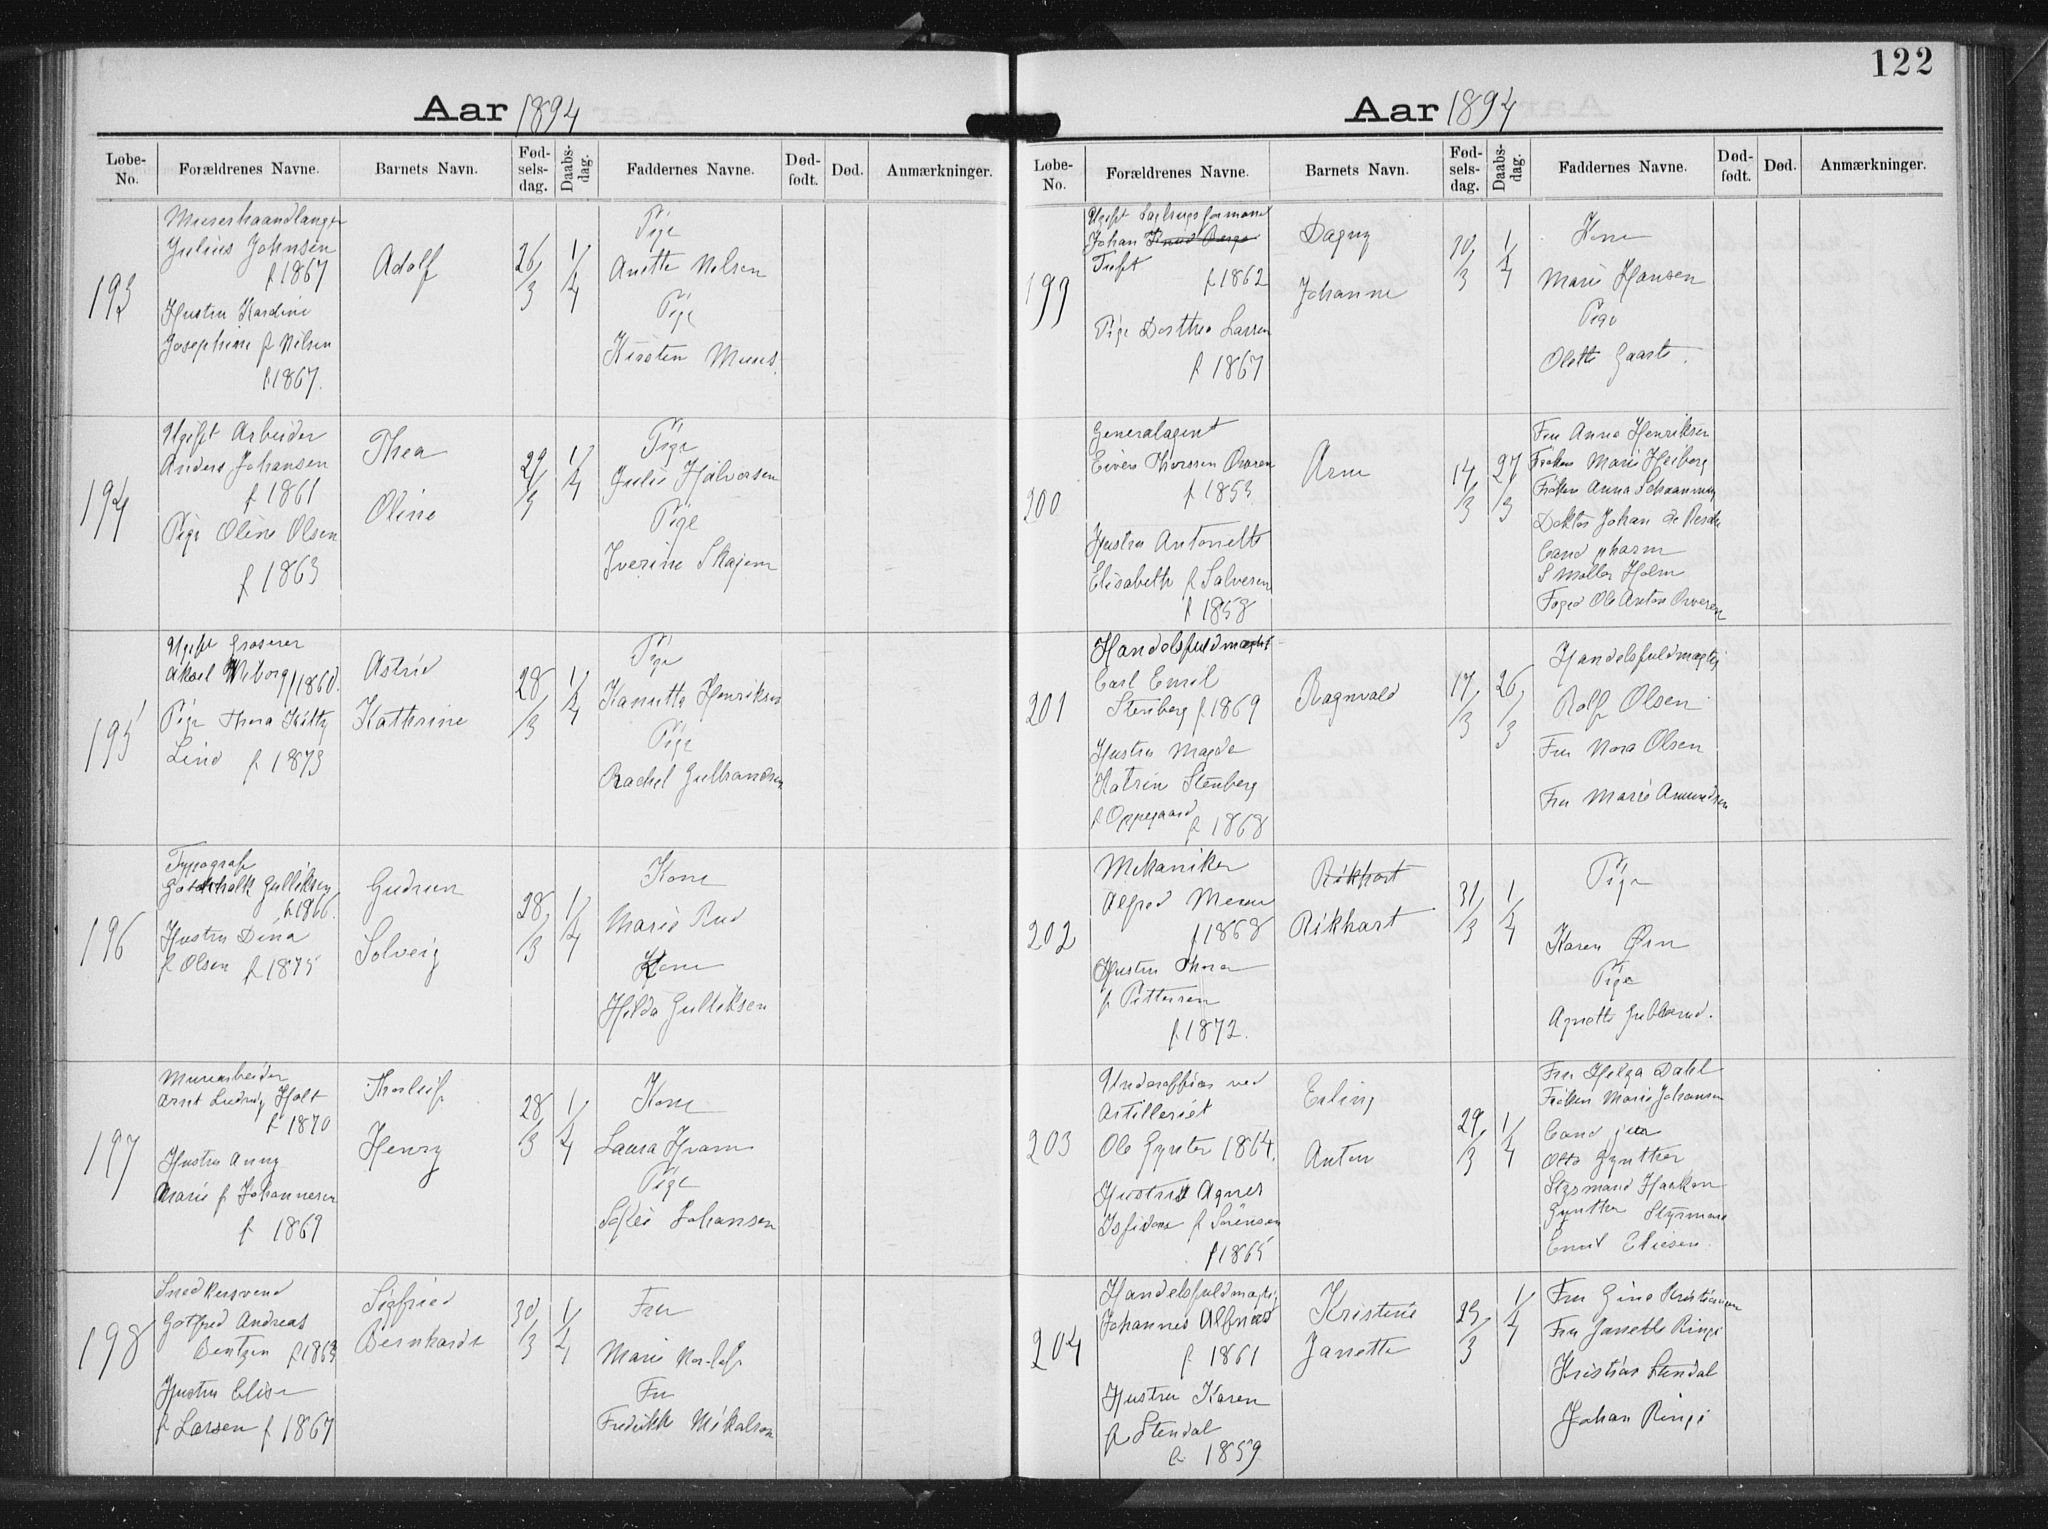 Aar 1894
Løbe-No. Forældrenes Navne. Barnets Navn. Fød-sels-dag. Daabs-dag. Faddernes Navne. Død-født. Død. Anmærkninger.
193
Murerhaandlanger
Julius Johnsen
f 1867
Hustru Kardine
Josephine f Nilsen
f 1867.
Adolf
26/3
1/4
Pige
Anette Nilsen
Pige
Kirsten
194
Ugift Arbeider
Anders Johansen
f 1861
Pige Oline Olsen
f 1863
Thea
Oline
29/3
1/4
Pige
Julie Halvorsen
Pige
Iverine Skajem
195
Ugift Groserer
Aksel Wiborg f 1860.
Pige Thora Kitty
Lind f 1873
Astrid
Kathrine
28/3
1/4
Pige
Hanette Henriksen
Pige
Rachel Gulbrandsen
196
Typograf
Gotskhalk Gulliksen
f 1866.
Hustru Dina
f Olsen f 1875
Gudrun
Solveig
28/3
1/4
Kone
Marie Rud
Kone
Hilda Gulliksen
197
Murerarbeider
Arnt Ludvig Holt
f 1870
Hustru Anny
Marie f Johannesen
f 1869
Thorleif
Henry
28/3
1/4
Kone
Laura Hvam
Pige
Sofie Johansen
198
Snedkersvend
Gotfred Andreas
Bentzen f 1863
Hustru Elise
f Larsen f 1867
Sigfried
Bernhardt
30/3
1/4
Fru
Marie
Fru
Fredrikke Mikalsen
122
Aar 1894
Løbe-No. Forældrenes Navne. Barnets Navn. Fød-sels-dag. Daabs-dag. Faddernes Navne. Død-født. Død. Anmærkninger.
199
Ugift Sagbrugsformand
Johan Knud Berge
Tuft
f 1862
Pige Dorthea Larsen
f 1867
Dagny
Johanne
30/3
1/4
Kone
Marie Hansen
Pige
Olette Gaarte.
200
Generalagent
Eivers Thorssen Orvren
f 1853
Hustru Antonette
Elisabeth f Salvesen
f 1858
Arne
14/3
27/3
Fru Anna Henriksen
Frøken Marie Heiberg
Frøken Anna Schaanning
Doktor Johan de
Cand pharm
S Møller Holm
Foged Ole Anton Orveren
201
Handelsfuldmægtig
Carl Emil
Stenberg f 1869
Hustru Magda
Katrin Stenberg
f Oppegaard f 1868
Ragnvald
17/3
26/3
Handelsfuldmægtig
Rolf Olsen
Fru Nora Olsen
Fru Marie Amundsen
202
Mekaniker
Alfred Meun
f 1868
Hustru Thora
f Pettersen
f 1872.
Rikhart
Rikhart
31/3
1/4
Pige
Karen Ørn
Pige
Agnette Gulbrand.
203
Underofficer ved
Artilleriet
Ole Gynter 1864.
Hustru Agnes
Isfidora f Sørensen
f 1865
Erling
Anton
29/3
1/4
Fru Helga Dahl
Frøken Marie Johansen
Cand jur
Otto Gynther
Styrmand Haakon
Gynther Styrmand
Emil Eliesen.
204
Handelsfuldmægtig
Johannes Alfnæs
f 1861
Hustru Karen
f Stendal
f 1859
Kristine
Janette
23/3
1/4
Fru Gina Kristiansen
Fru Janette Ringi
Kristian Stendal
Johan Ringi